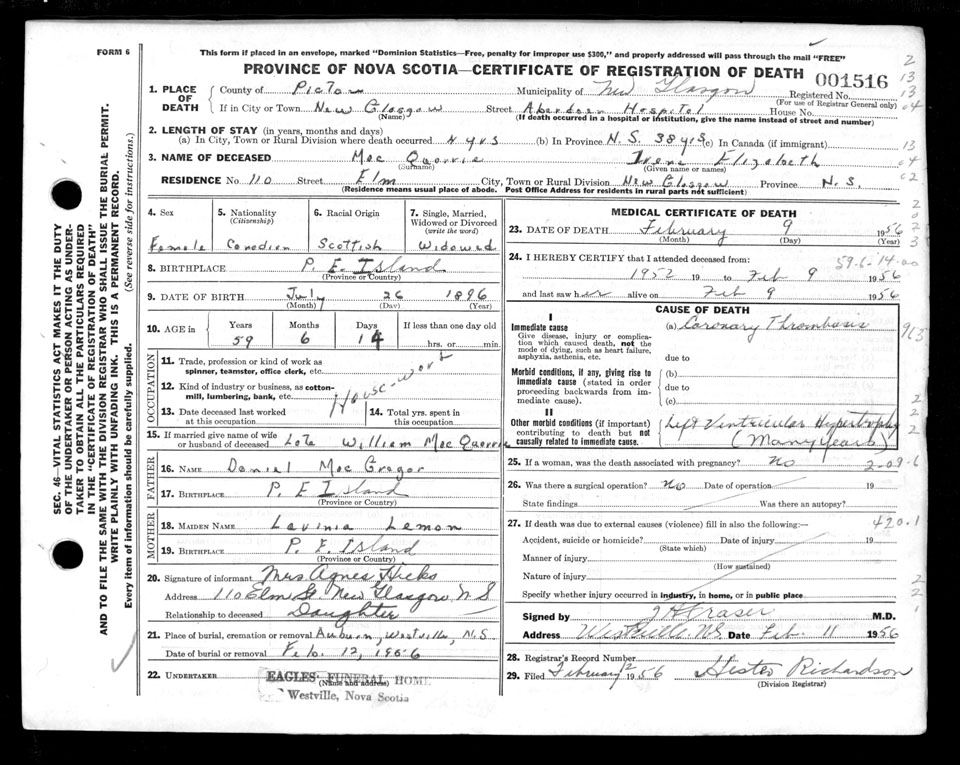 FORM 6
This form if placed in an envelope, marked "Dominion Statistics—Free, penalty for improper use $300," and properly addressed will pass through the mail "FREE"
PROVINCE OF NOVA SCOTIA—CERTIFICATE OF REGISTRATION OF DEATH
001516
1. PLACE OF DEATH County of Pictou Municipality of New Glasgow Registered No.
(For use of Registrar General only)
If in City or Town New Glasgow Street Aberdeen Hospital House No.
(Name) (If death occurred in a hospital or institution, give the name instead of street and number)
2. LENGTH OF STAY (in years, months and days)
(a) In City, Town or Rural Division where death occurred 4 yrs (b) In Province N.S. 38 yrs (c) In Canada (if immigrant)
3. NAME OF DECEASED Mac Quarrie Irene Elizabeth
(Surname) (Given name or names)
RESIDENCE No 110 Street Elm City, Town or Rural Division New Glasgow Province N.S.
(Residence means usual place of abode. Post Office Address for residents in rural parts not sufficient)
SEC. 46—VITAL STATISTICS ACT MAKES IT THE DUTY
OF THE UNDERTAKER OR PERSON ACTING AS UNDER-
TAKER TO OBTAIN ALL THE PARTICULARS REQUIRED
IN THE "CERTIFICATE OF REGISTRATION OF DEATH"
AND TO FILE THE SAME WITH THE DIVISION REGISTRAR WHO SHALL ISSUE THE BURIAL PERMIT.
WRITE PLAINLY WITH UNFADING INK. THIS IS A PERMANENT RECORD.
Every item of information should be carefully supplied. (See reverse side for instructions.)
4. Sex
Female
5. Nationality
(Citizenship)
Canadian
6. Racial Origin
Scottish
7. Single, Married,
Widowed or Divorced
(write the word)
Widowed
8. BIRTHPLACE P. E. Island
(Province or Country)
9. DATE OF BIRTH July 26 1896
(Month) (Day) (Year)
10. AGE in Years Months Days If less than one day old
59 6 14 hrs. or min.
OCCUPATION
11. Trade, profession or kind of work as
spinner, teamster, office clerk, etc.
12. Kind of industry or business, as cotton-
mill, lumbering, bank, etc.
House-work
13. Date deceased last worked
at this occupation
14. Total yrs. spent in
this occupation
15. If married give name of wife
or husband of deceased Late William Mac Quarrie
FATHER
16. NAME Daniel Mac Gregor
17. BIRTHPLACE P. E Island
(Province or Country)
MOTHER
18. MAIDEN NAME Lavinia Lemon
19. BIRTHPLACE P. E. Island
(Province or Country)
20. Signature of informant Mrs Agnes Hicks
Address 110 Elm St. New Glasgow N S
Relationship to deceased Daughter
21. Place of burial, cremation or removal Auburn, Westville, N.S
Date of burial or removal Feb. 12, 1956
22. UNDERTAKER EAGLES FUNERAL HOME
(Name and address)
Westville, Nova Scotia
MEDICAL CERTIFICATE OF DEATH
23. DATE OF DEATH February 9 1956
(Month) (Day) (Year)
59-6-14-00
24. I HEREBY CERTIFY that I attended deceased from:
1952 19 to Feb 9 1956
and last saw her alive on Feb 9 1956
CAUSE OF DEATH
I
Immediate cause
Give disease, injury or complica-
tion which caused death, not the
mode of dying, such as heart failure,
asphyxia, asthenia, etc.
(a) Coronary Thrombosis
due to
Morbid conditions, if any, giving rise to
immediate cause (stated in order
proceeding backwards from im-
mediate cause).
(b)
due to
(c)
II
Other morbid conditions (if important)
contributing to death but not
causally related to immediate cause.
Left Ventricular Hypertrophy
(Many years)
25. If a woman, was the death associated with pregnancy? No
26. Was there a surgical operation? No Date of operation 19
State findings Was there an autopsy?
27. If death was due to external causes (violence) fill in also the following:—
420.1
Accident, suicide or homicide? Date of injury 19
(State which)
Manner of injury
(How sustained)
Nature of injury
Specify whether injury occurred in industry, in home, or in public place
Signed by J H Fraser M.D.
Address Westville N.S. Date Feb. 11 1956
28. Registrar's Record Number
29. Filed February 12 1956 Hester Richardson
(Division Registrar)